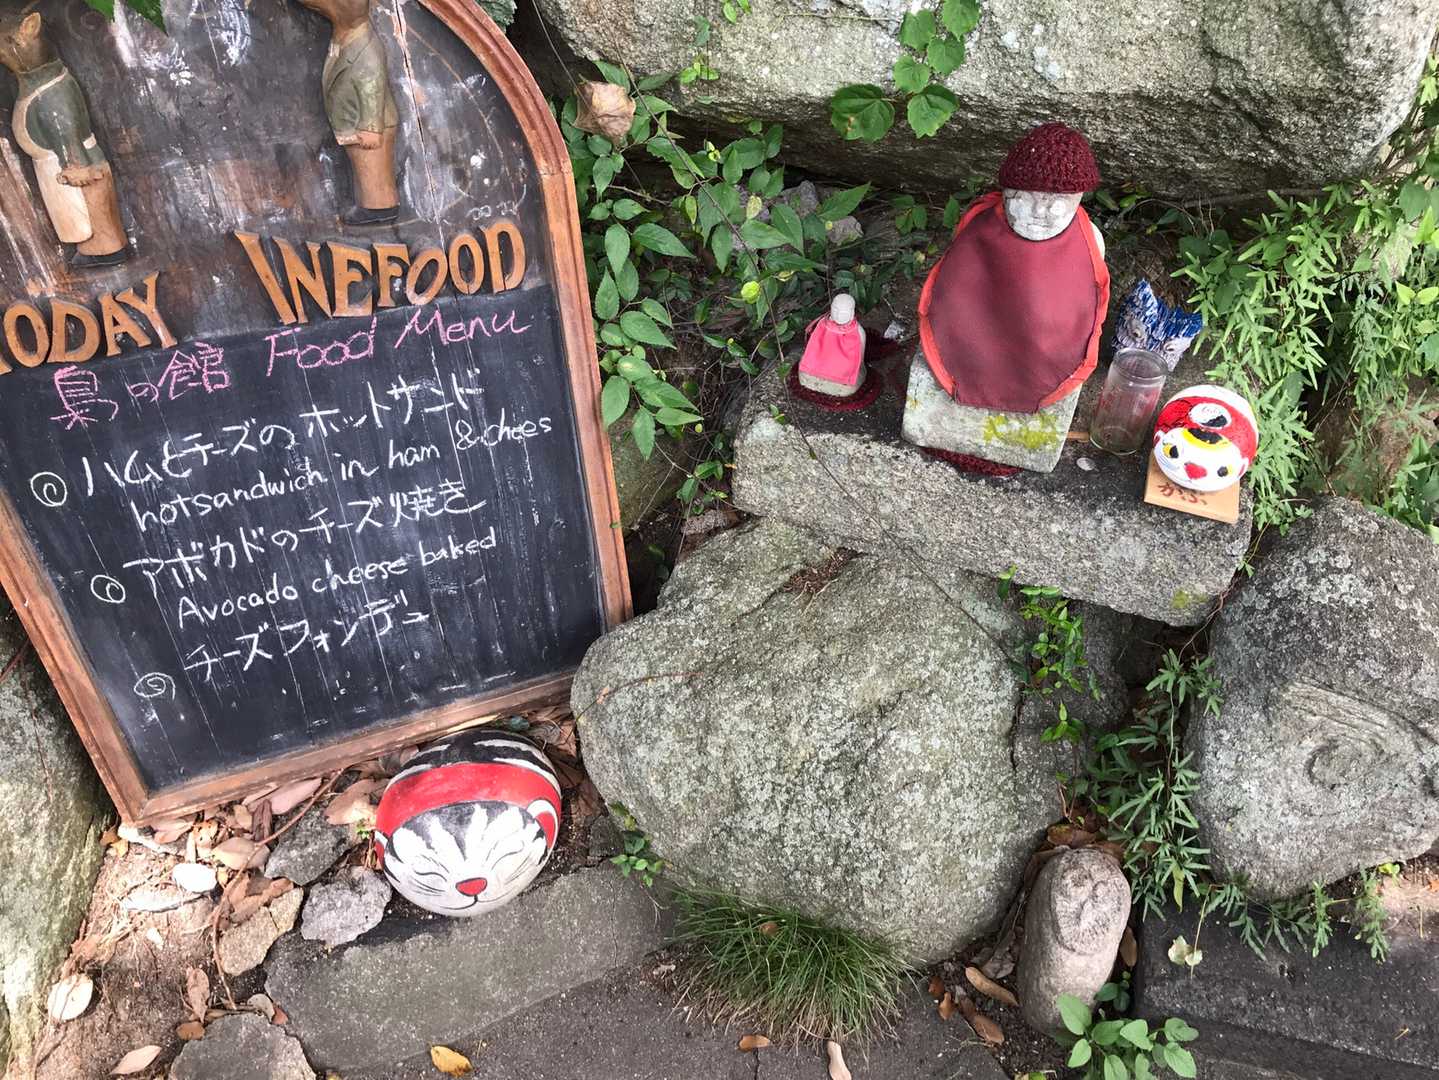 TODAY INEFOOD
梟の館 Food Menu
ハムとチーズの ホットサンド
hotsandwich in ham & chees
アボカドのチーズ焼き
Avocado cheese baked
チーズフォンデュ
かぶ